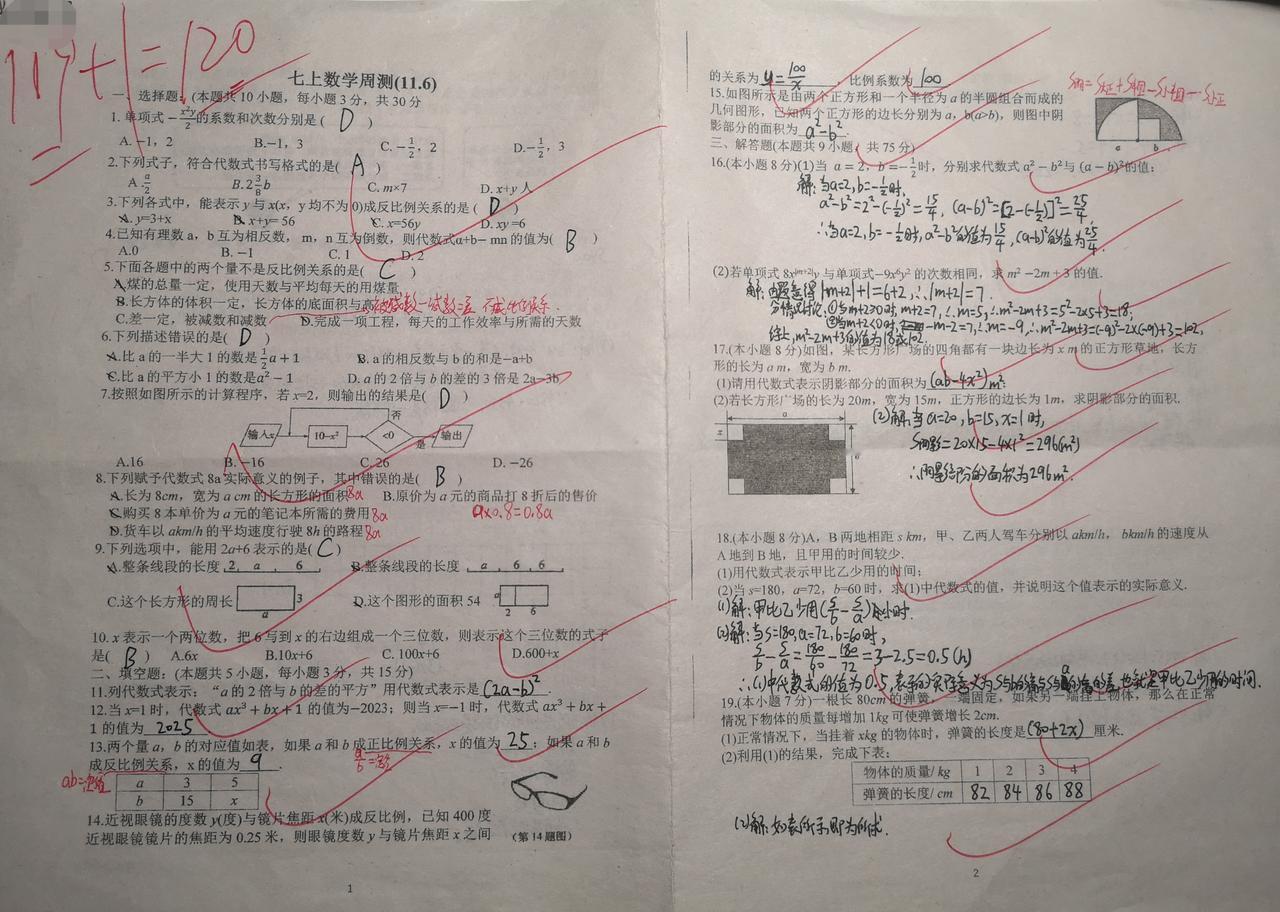 119+1=120
七上数学周测(11.6)
一、选择题：(本题共 10 小题，每小题 3 分，共 30 分
1. 单项式－x²y/2的系数和次数分别是 ( D )
A. −1，2 B.−1，3 C. −1/2，2 D.−1/2，3
2.下列式子，符合代数式书写格式的是 ( A )
A a/2 B. 2 3/8 b C. m×7 D. x+y 人
3.下列各式中，能表示 y 与 x(x，y 均不为 0)成反比例关系的是 ( D )
A. y=3+x B. x+y= 56 C. x=56y D. xy =6
4.已知有理数 a，b 互为相反数， m，n 互为倒数，则代数式a+b− mn 的值为( B )
A.0 B. −1 C. 1 D. 2
5.下面各题中的两个量不是反比例关系的是( C )
A.煤的总量一定，使用天数与平均每天的用煤量
B.长方体的体积一定，长方体的底面积与高 被减数－减数=差 不成比例关系.
C.差一定，被减数和减数 D.完成一项工程，每天的工作效率与所需的天数
6.下列描述错误的是 ( D )
A.比 a 的一半大 1 的数是1/2a + 1 B. a 的相反数与 b 的和是−a+b
C.比 a 的平方小 1 的数是a² − 1 D. a 的 2 倍与 b 的差的 3 倍是 2a−3b
7.按照如图所示的计算程序，若 x=2，则输出的结果是( D )
否
输入x 10−x² <0 是 输出
A.16 B. −16 C. 26 D. −26
8.下列赋予代数式 8a 实际意义的例子，其中错误的是( B )
A.长为 8cm，宽为 a cm 的长方形的面积8a B.原价为 a 元的商品打 8 折后的售价
C.购买 8 本单价为 a 元的笔记本所需的费用8a a×0.8=0.8a
D.货车以 akm/h 的平均速度行驶 8h 的路程8a
9.下列选项中，能用 2a+6 表示的是( C )
A.整条线段的长度 2, a , 6 B.整条线段的长度 a , 6 , 6
C.这个长方形的周长 3 a D.这个图形的面积 54 a 2 6
10. x 表示一个两位数，把 6 写到 x 的右边组成一个三位数，则表示这个三位数的式子
是( B ) A.6x B.10x+6 C. 100x+6 D.600+x
二、填空题：(本题共 5 小题，每小题 3 分，共 15 分)
11.列代数式表示：“a 的 2 倍与 b 的差的平方”用代数式表示是 (2a-b)² .
12.当 x=1 时，代数式 ax³ + bx + 1 的值为−2023；则当 x=−1 时，代数式 ax³ + bx +
1 的值为 2025
13.两个量 a，b 的对应值如表，如果 a 和 b 成正比例关系，x 的值为 25 ；如果 a 和 b
成反比例关系，x 的值为 9 . a/b=定值
ab=定值
a 3 5
b 15 x
14.近视眼镜的度数 y(度)与镜片焦距 x(米)成反比例，已知 400 度
近视眼镜镜片的焦距为 0.25 米，则眼镜度数 y 与镜片焦距 x 之间
(第 14 题图)
1
的关系为 y=100/x ，比例系数为 100
15.如图所示是由两个正方形和一个半径为 a 的半圆组合而成的
几何图形，已知两个正方形的边长分别为 a，b(a>b)，则图中阴
影部分的面积为 a²-b²
a b
三、解答题(本题共 9 小题，共 75 分)
16.(本小题 8 分)(1)当 a = 2，b =−1/2时，分别求代数式 a² − b²与 (a − b)²的值；
解:当a=2,b=-1/2时,
a²-b²=2²-(-1/2)²=15/4, (a-b)²=[2-(-1/2)]²=25/4,
∴当a=2,b=-1/2时,a²-b²的值为15/4,(a-b)²的值为25/4.
(2)若单项式 8x|m+2|y 与单项式−9x⁶y² 的次数相同，求 m² − 2m + 3 的值.
解:由题意得|m+2|+1=6+2,∴|m+2|=7.
分情况讨论:①当m+2>0时,m+2=7,∴m=5,∴m²-2m+3=5²-2×5+3=18;
②当m+2<0时,-m-2=7,∴m=-9,∴m²-2m+3=(-9)²-2×(-9)+3=102,
综上,m²-2m+3的值为18或102.
17.(本小题 8 分)如图，某长方形广场的四角都有一块边长为 x m 的正方形草地，长方
形的长为 a m，宽为 b m.
(1)请用代数式表示阴影部分的面积为 (ab-4x²) m²;
(2)若长方形广场的长为 20m，宽为 15m，正方形的边长为 1m，求阴影部分的面积.
a
x
(2)解:当a=20,b=15,x=1时,
S阴影=20×15-4×1²=296(m²)
∴阴影部分的面积为296m².
18.(本小题 8 分)A，B 两地相距 s km，甲、乙两人驾车分别以 akm/h， bkm/h 的速度从
A 地到 B 地，且甲用的时间较少.
(1)用代数式表示甲比乙少用的时间；
(2)当 s=180，a=72，b=60 时，求(1)中代数式的值，并说明这个值表示的实际意义.
(1)解:甲比乙少用(s/b-s/a)小时.
(2)解:当s=180,a=72,b=60时,
s/b-s/a=180/60-180/72=3-2.5=0.5(h)
∴(1)中代数式的值为0.5,表示的实际意义为s与b的商与s与a的商的差,也就是甲比乙少用的时间.
19.(本小题 7 分)一根长 80cm 的弹簧，一端固定，如果另一端挂上物体，那么在正常
情况下物体的质量每增加 1kg 可使弹簧增长 2cm.
(1)正常情况下，当挂着 xkg 的物体时，弹簧的长度是 (80+2x) 厘米.
(2)利用(1)的结果，完成下表：
物体的质量/ kg 1 2 3 4
弹簧的长度/ cm 82 84 86 88
(2)解:如表所示即为所求.
2